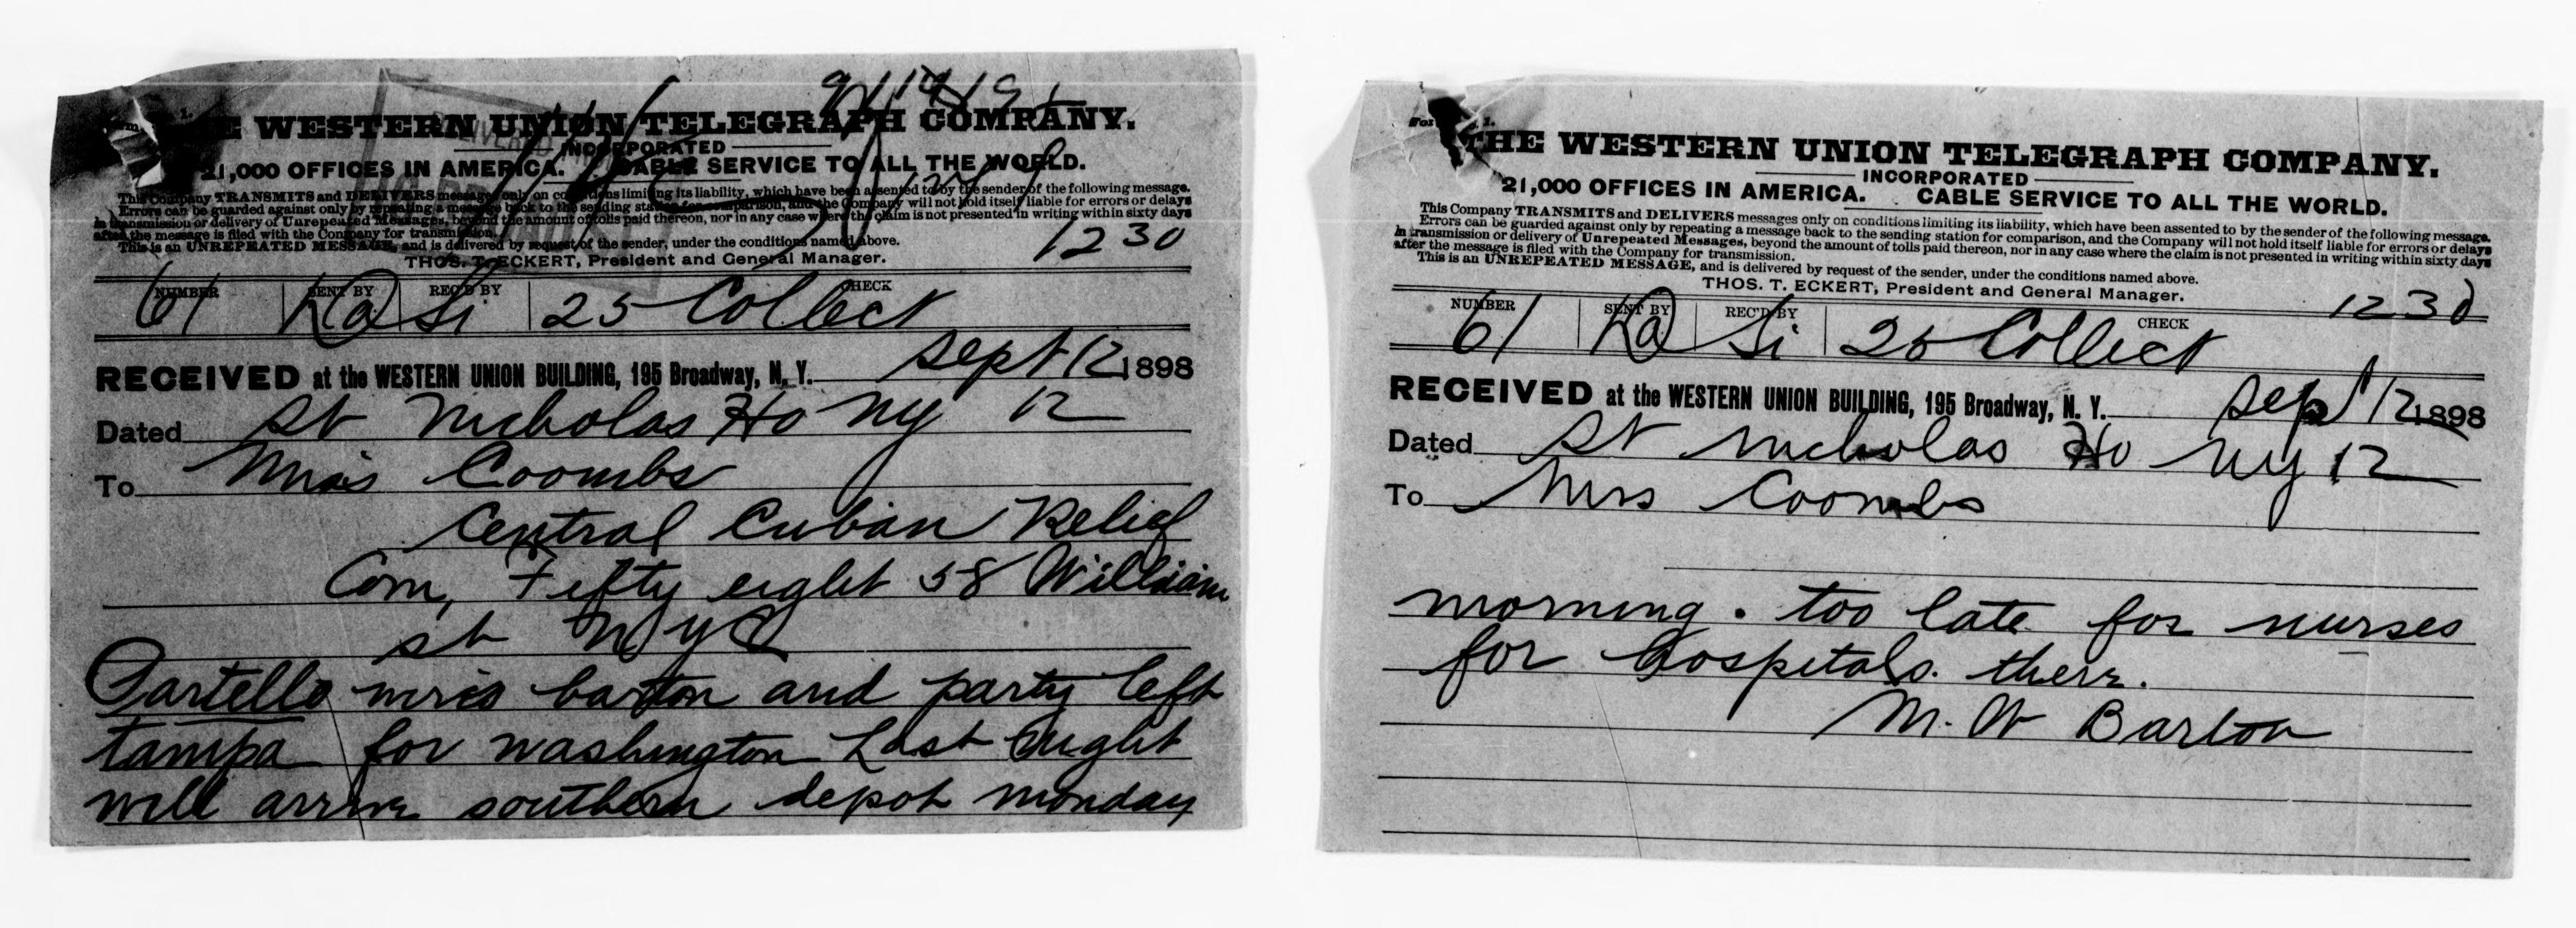 THE WESTERN UNION TELEGRAPH COMPANY.
INCORPORATED
21,000 OFFICES IN AMERICA. CABLE SERVICE TO ALL THE WORLD.
This Company TRANSMITS and DELIVERS messages only on conditions limiting its liability, which have been assented to by the sender of the following message.
Errors can be guarded against only by repeating a message back to the sending station for comparison, and the Company will not hold itself liable for errors or delays
in transmission or delivery of Unrepeated Messages, beyond the amount of tolls paid thereon, nor in any case where the claim is not presented in writing within sixty days
after the message is filed with the Company for transmission.
This is an UNREPEATED MESSAGE, and is delivered by request of the sender, under the conditions named above.
THOS. T. ECKERT, President and General Manager.
1230
NUMBER SENT BY REC'D BY CHECK
61 Ka Si 25 Collect
RECEIVED at the WESTERN UNION BUILDING, 195 Broadway, N. Y. Sept 12 1898
Dated St Nicholas Ho NY 12
To Miss Coombs
Central Cuban Relief
Com, Fifty eight 58 William
st NYC
Partello miss barton and party left
tampa for washington Last night
will arrive southern depot monday
THE WESTERN UNION TELEGRAPH COMPANY.
INCORPORATED
21,000 OFFICES IN AMERICA. CABLE SERVICE TO ALL THE WORLD.
This Company TRANSMITS and DELIVERS messages only on conditions limiting its liability, which have been assented to by the sender of the following message.
Errors can be guarded against only by repeating a message back to the sending station for comparison, and the Company will not hold itself liable for errors or delays
in transmission or delivery of Unrepeated Messages, beyond the amount of tolls paid thereon, nor in any case where the claim is not presented in writing within sixty days
after the message is filed with the Company for transmission.
This is an UNREPEATED MESSAGE, and is delivered by request of the sender, under the conditions named above.
THOS. T. ECKERT, President and General Manager.
1230
NUMBER SENT BY REC'D BY CHECK
61 Ka Si 25 Collect
RECEIVED at the WESTERN UNION BUILDING, 195 Broadway, N. Y. Sept 12 1898
Dated St Nicholas Ho NY 12
To Mrs Coombs
morning. too late for nurses
for hospitals. there.
M. W Barton